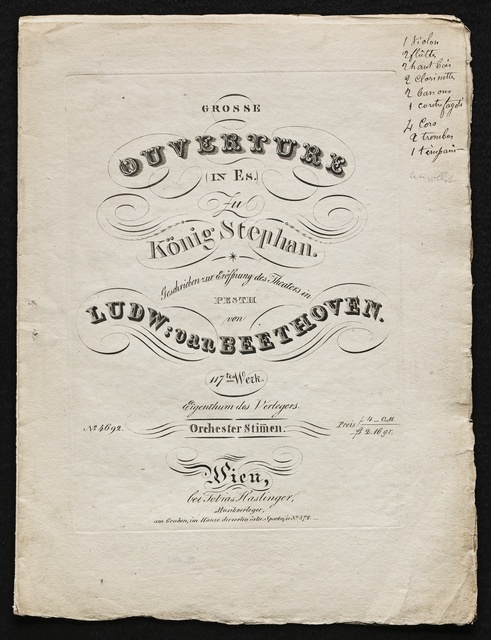 1 Violon
2 flûtes
2 haut bois
2 Clarinettes
2 bassons
1 contrefagott
4 Cors
2 trombes
1 timpani
GROSSE
OUVERTURE
(IN Es.)
zu
König Stephan.
Geschrieben zur Eröffnung des Theaters in
PESTH
von
LUDW: van BEETHOVEN.
117tes Werk.
Eigenthum des Verlegers.
No 4692.
Orchester Stim̅en.
Preis f. 4 _ C.M.
2.16 gr.
Wien,
bei Tobias Haslinger,
Musikverleger,
am Graben, im Hause der ersten österr. Sparkasse No 572.